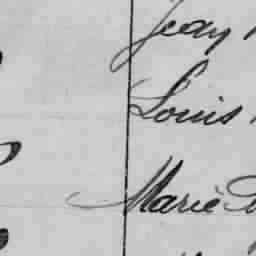 Jean
Louis
Marie